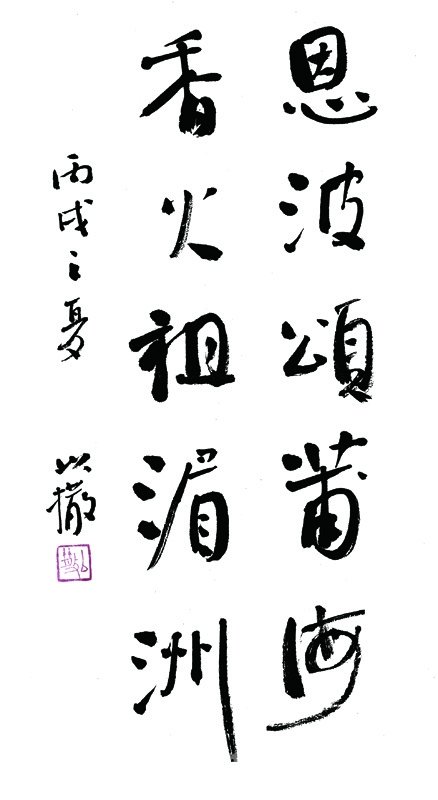 恩波頌莆海
香火祖湄洲
丙戌之夏 以撒